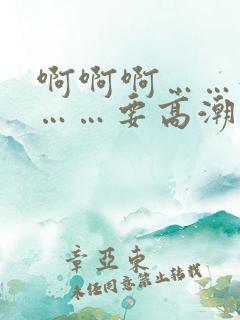 啊啊啊……
……要高潮
章亚东
未经同意禁止转载